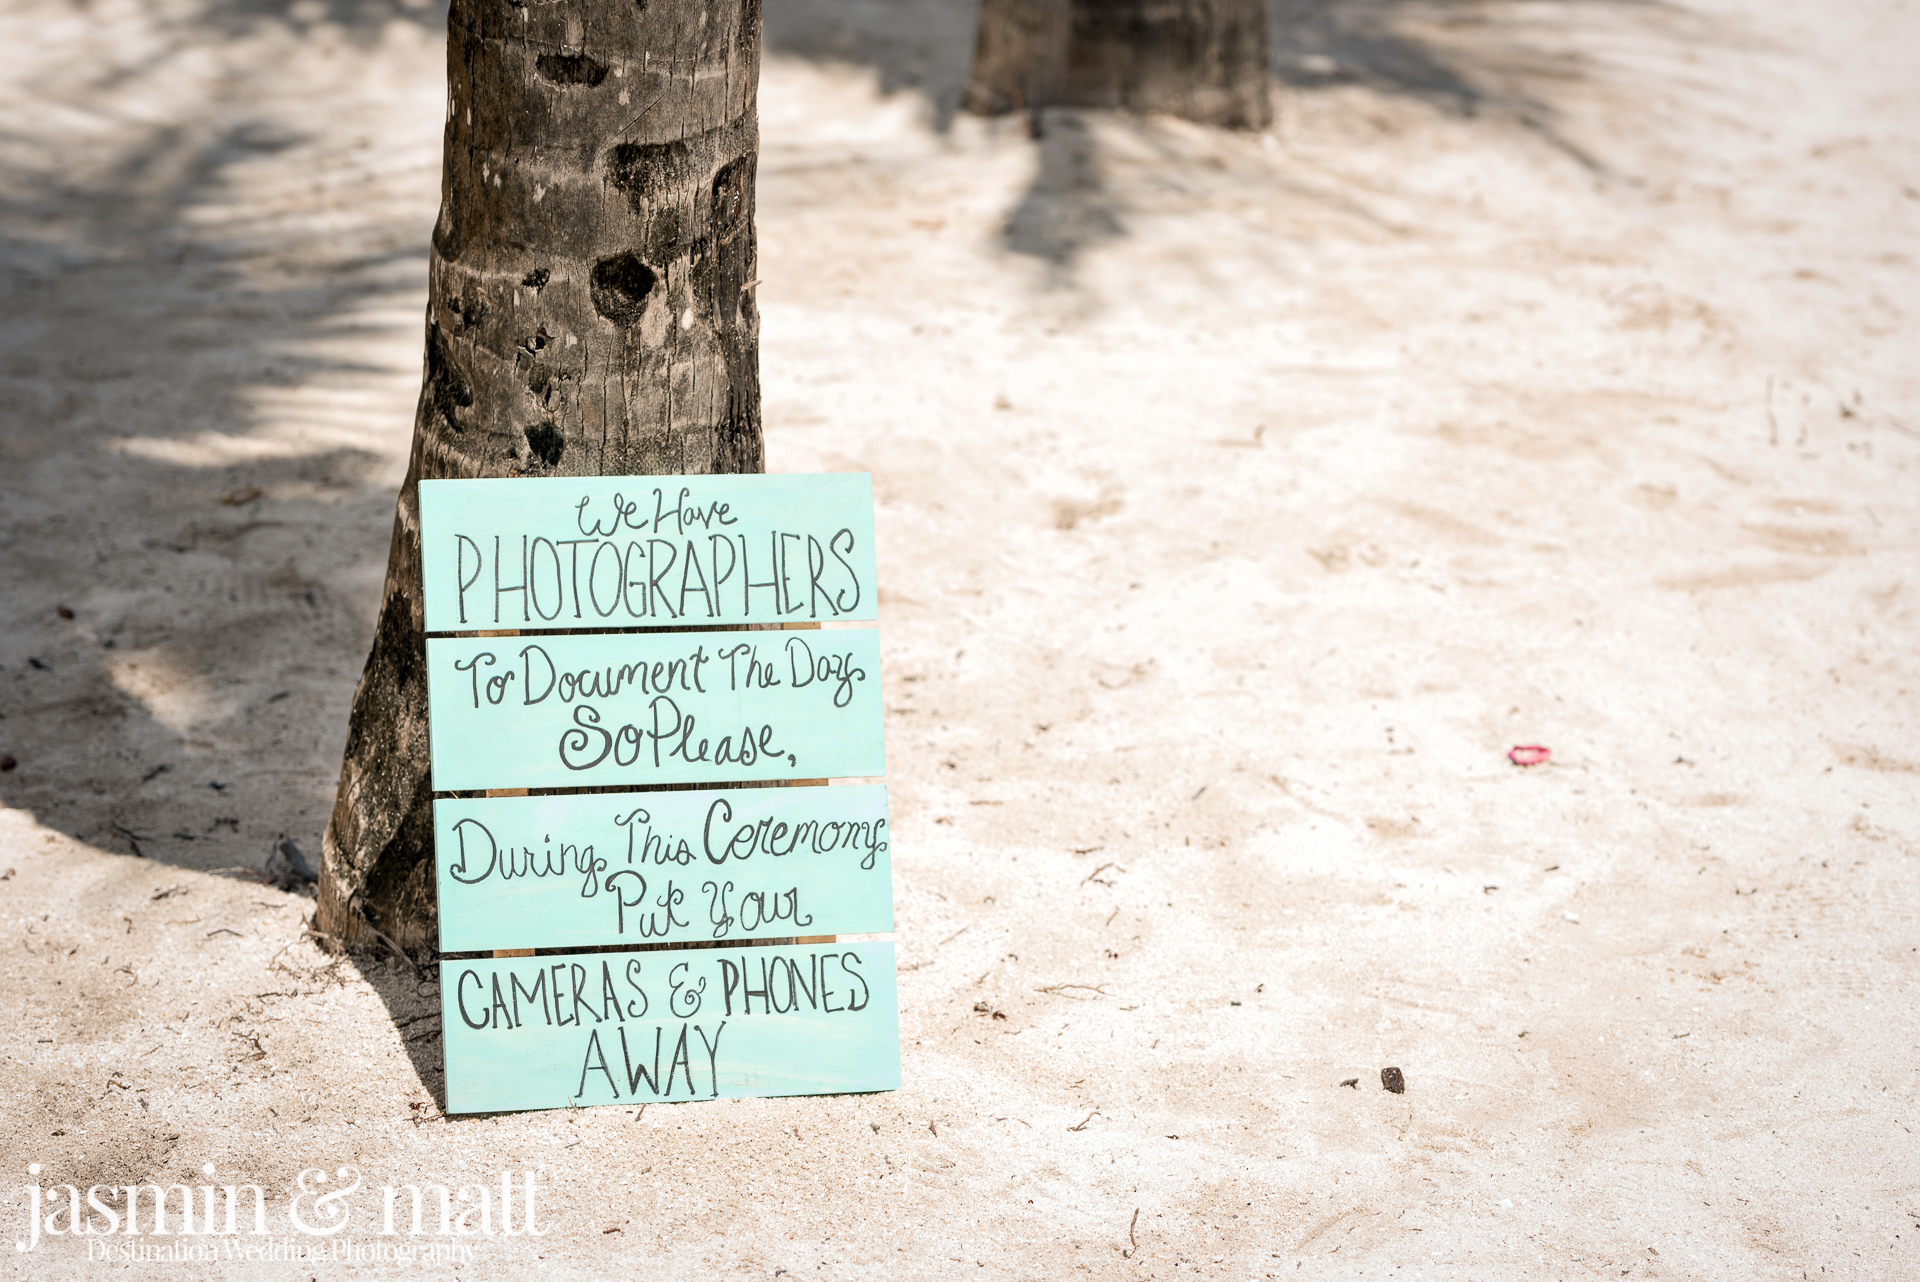 We Have
PHOTOGRAPHERS
To Document The Day
So Please,
During This Ceremony
Put Your
CAMERAS & PHONES
AWAY
jasmin & matt
Destination Wedding Photography